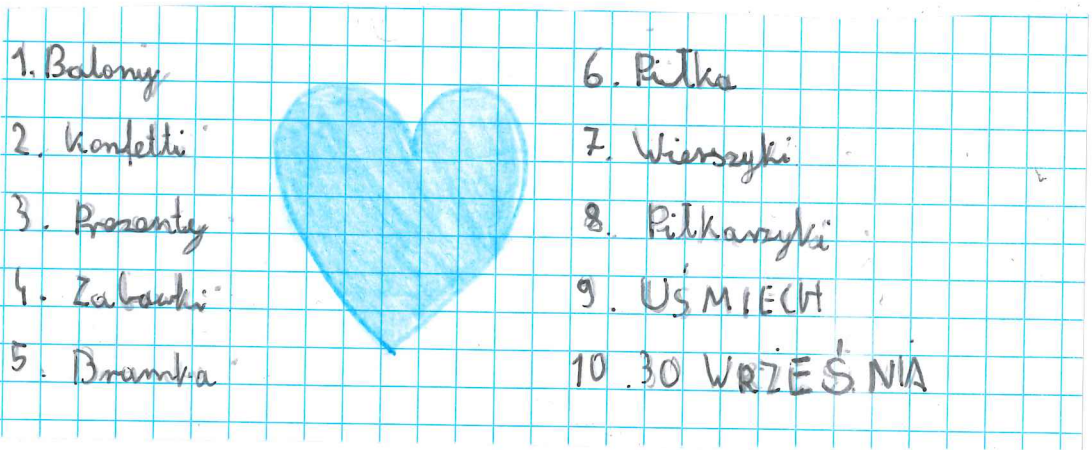 1. Balony
2. Konfetti
3. Prezenty
4. Zabawki
5. Bramka
6. Piłka
7. Wierszyki
8. Piłkarzyki
9. UŚMIECH
10. 30 WRZEŚNIA